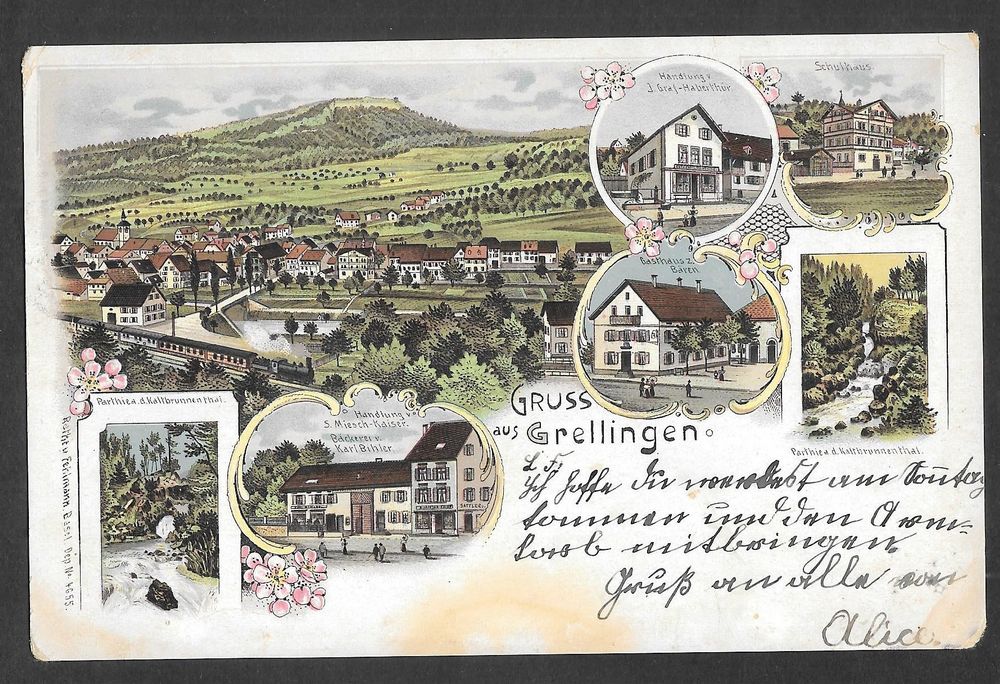 Handlung v
J. Graf-Haberthür
Schulhaus.
Gasthaus z.
Bären
Parthie a. d. Kaltbrunnenthal.
Handlung v.
S. Miesch-Kaiser.
Bäckerei v.
Karl Bihler.
SATTLER
GRUSS
aus Grellingen
Parthie a. d. Kaltbrunnenthal.
Fehlmann Basel Dep. No. 4655.
L. F.
Ich hoffe du werdest am Sonntag
kommen und den Arm-
korb mitbringen.
Gruß an alle von
Alice.